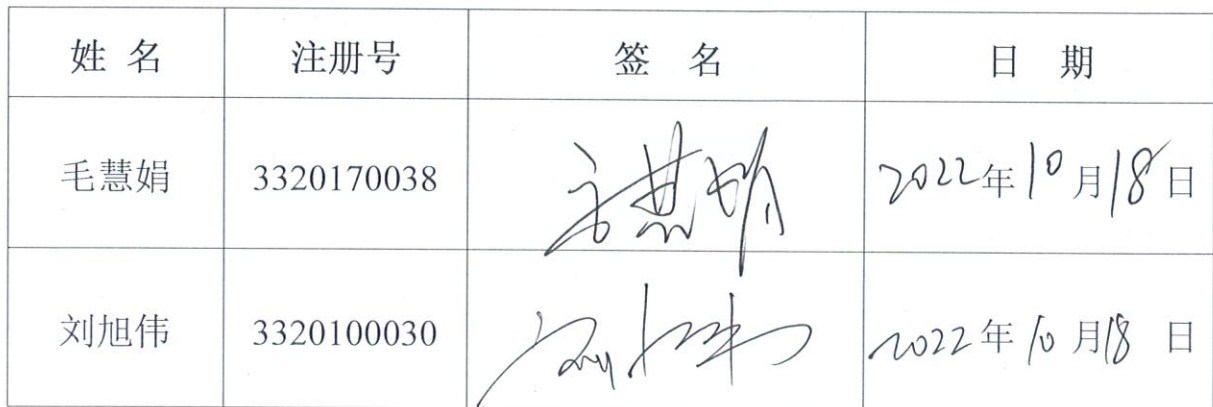 姓 名 注册号 签 名 日 期
毛慧娟 3320170038 毛慧娟 2022年10月18日
刘旭伟 3320100030 刘旭伟 2022年10月18日